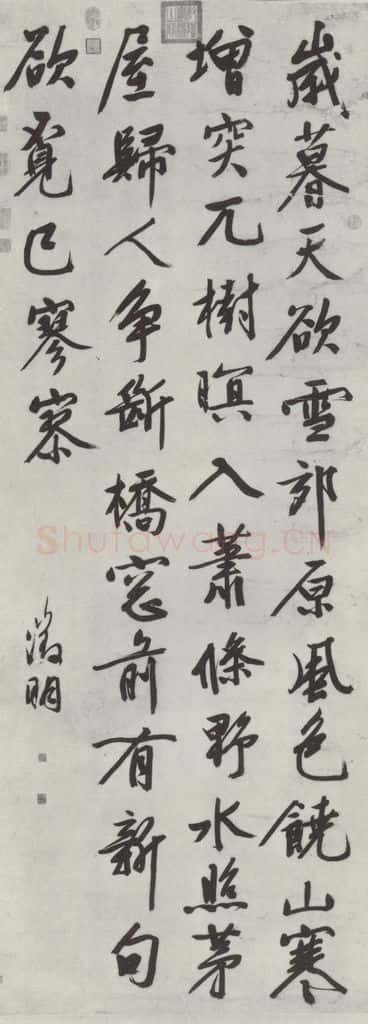 歲暮天欲雪郊原風色饒山寒
增突兀樹暝入蕭條野水照茅
屋歸人争斷橋窓前有新句
欲覓已寥寥
徵明
Shufawang.CN